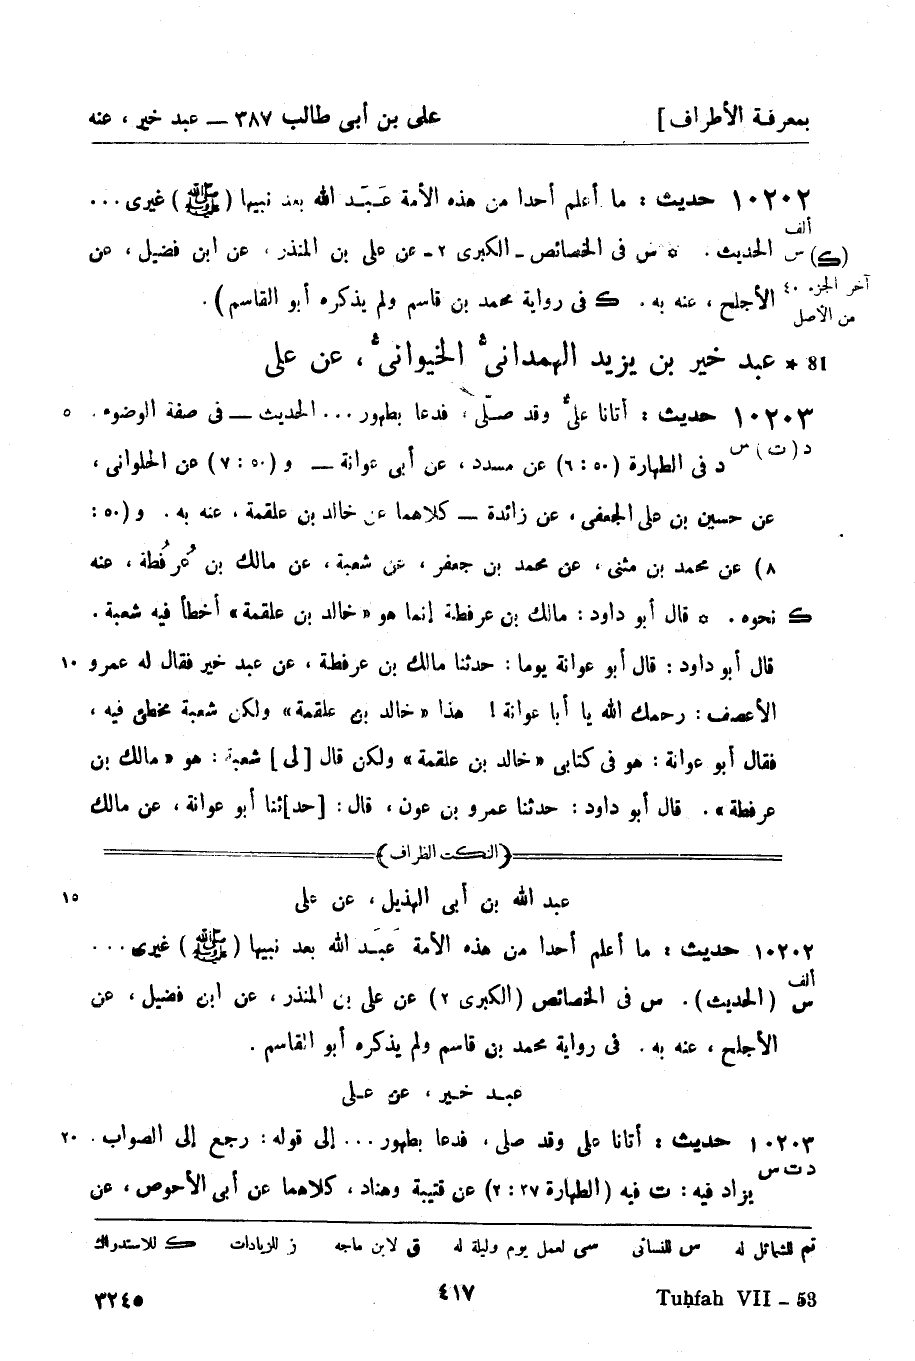 بمعرفة الأطراف ] على بن أبى طالب ٣٨٧ ــ عبد خير ، عنه
١٠٢٠٢ حديث : ما أعلم أحدا من هذه الأمة عَبَدَ الله بعد نبيها (ﷺ) غيرى . . .
ألف
(ك) س الحديث . * س فى الخصائص ـ الكبرى ٢ ـ عن على بن المنذر ، عن ابن فضيل ، عن
آخر الجزء ٤٠
من الأصل
الأجلح ، عنه به . ك فى رواية محمد بن قاسم ولم يذكره أبو القاسم ) .
81 * عبد خير بن يزيد الهمدانىُّ الخيوانىُّ ، عن على
١٠٢٠٣ حديث : أتانا علىُّ وقد صلّى ، فدعا بطهور . . . الحديث ــ فى صفة الوضوء . ٥
د (ت) س د فى الطهارة (٥٠ : ٦) عن مسدد ، عن أبى عوانة ــ و (٥٠ : ٧) عن الحلوانى ،
عن حسين بن على الجعفى ، عن زائدة ــ كلاهما عن خالد بن علقمة ، عنه به . و (٥٠ :
٨) عن محمد بن مثنى ، عن محمد بن جعفر ، عن شعبة ، عن مالك بن عُرفُطة ، عنه
ك نحوه . * قال أبو داود : مالك بن عرفطة إنما هو «خالد بن علقمة» أخطأ فيه شعبة .
قال أبو داود : قال أبو عوانة يوما : حدثنا مالك بن عرفطة ، عن عبد خير فقال له عمرو ١٠
الأعصف : رحمك الله يا أبا عوانة ! هذا «خالد بن علقمة» ولكن شعبة مخطئ فيه ،
فقال أبو عوانة : هو فى كتابى «خالد بن علقمة» ولكن قال [لى] شعبة : هو «مالك بن
عرفطة» . قال أبو داود : حدثنا عمرو بن عون ، قال : [حد]ثنا أبو عوانة ، عن مالك
(النكت الظراف)
عبد الله بن أبى الهذيل ، عن على ١٥
١٠٢٠٢ حديث : ما أعلم أحدا من هذه الأمة عَبَدَ الله بعد نبيها (ﷺ) غيرى . . .
ألف
س (الحديث) . س فى الخصائص (الكبرى ٢) عن على بن المنذر ، عن ابن فضيل ، عن
الأجلح ، عنه به . فى رواية محمد بن قاسم ولم يذكره أبو القاسم .
عبد خير ، عن على
١٠٢٠٣ حديث : أتانا على وقد صلى ، فدعا بطهور . . . إلى قوله : رجع إلى الصواب . ٢٠
د ت س يزاد فيه : ت فيه (الطهارة ٣٧ : ٢) عن قتيبة وهناد ، كلاهما عن أبى الأحوص ، عن
تم للشمائل له س للنسائى سى لعمل يوم وليلة له ق لابن ماجه ز للزيادات ك للاستدراك
Tuḥfah VII – 53 ٤١٧ ٣٢٤٥